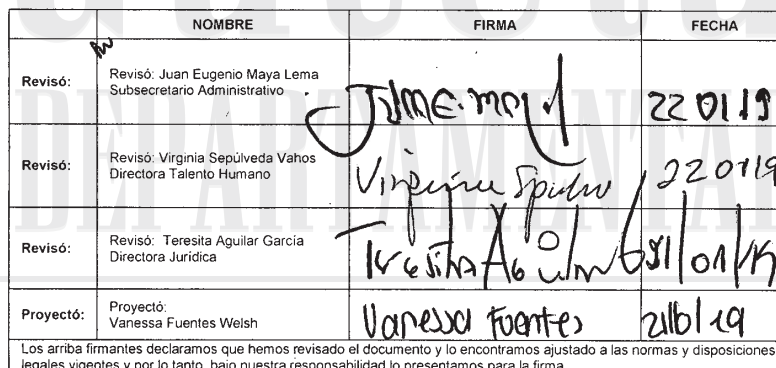 NOMBRE FIRMA FECHA
Revisó: Revisó: Juan Eugenio Maya Lema
Subsecretario Administrativo
22 01 19
Revisó: Revisó: Virginia Sepúlveda Vahos
Directora Talento Humano
22 01 19
Revisó: Revisó: Teresita Aguilar García
Directora Jurídica
Teresita Aguilar
Proyectó: Proyectó:
Vanessa Fuentes Welsh
Vanessa Fuentes
Los arriba firmantes declaramos que hemos revisado el documento y lo encontramos ajustado a las normas y disposiciones
legales vigentes y por lo tanto, bajo nuestra responsabilidad lo presentamos para la firma.
DEPARTAMENTAL